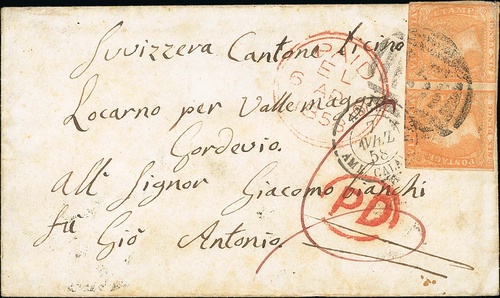 Svvizzera Cantone Ticino
Locarno per Valle maggia
Gordevio.
All' Signor Giacomo bianchi
fu Giò Antonio.
PAID
1858
58
AMB. CALAIS
PD
STAMP
POSTAGE